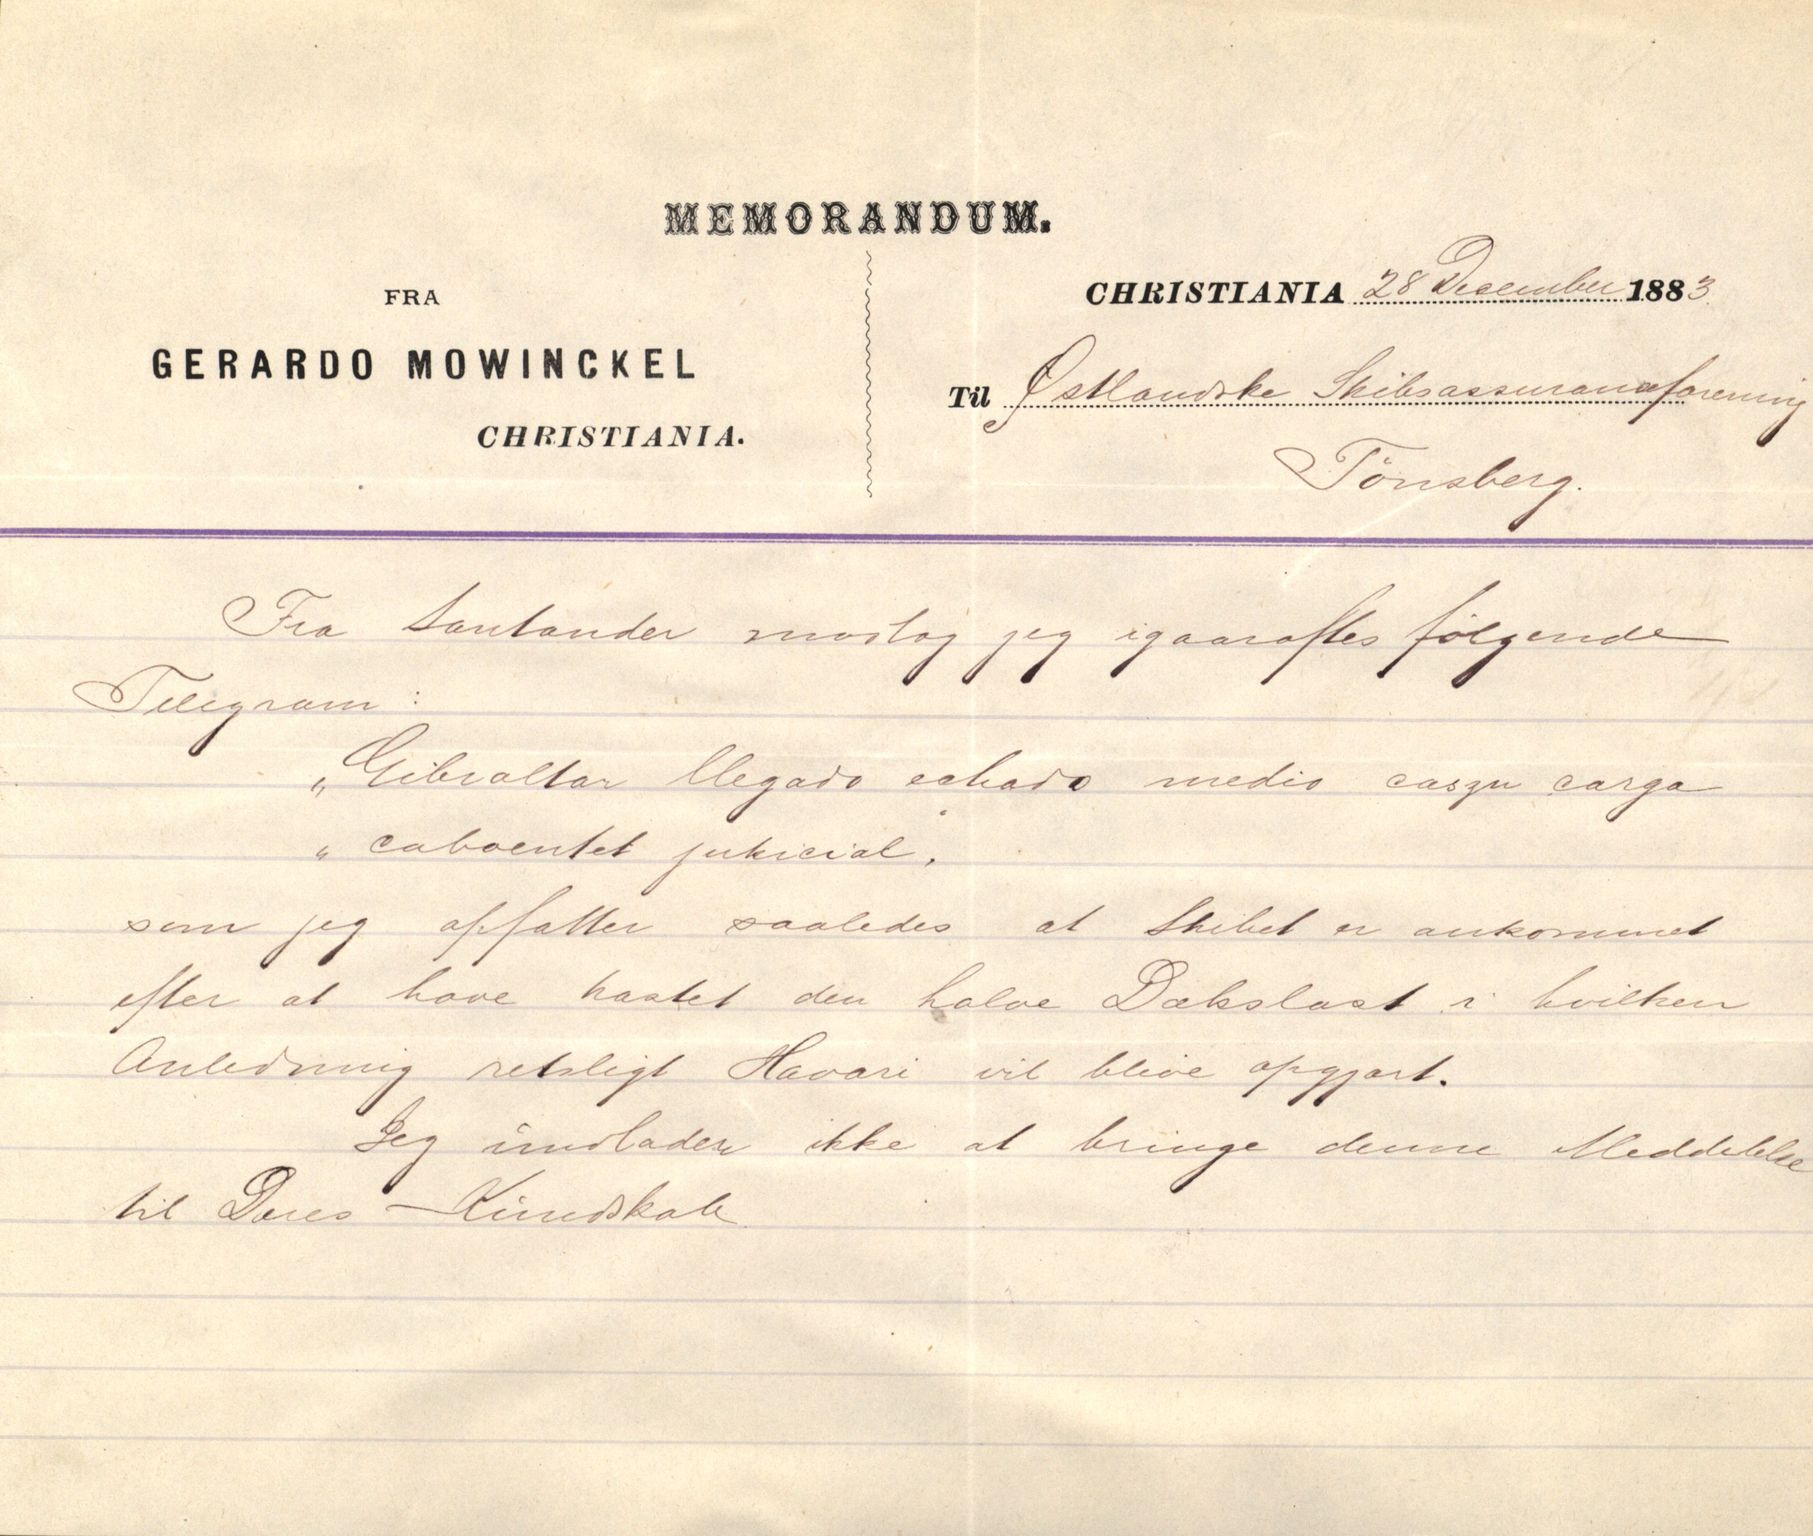 MEMORANDUM.
FRA
GERARDO MOWINCKEL
CHRISTIANIA.
CHRISTIANIA 28 December 1883
Til Østlandske Skibsassuranceforening
Tönsberg.
Fra Santander modtog jeg igaaraftes følgende
Telegram:
"Gibraltar llegado echado medio caszu carga
" caboentet jukicial.
som jeg opfatter saaledes at Skibet er ankommet
efter at have kastet den halve Dækslast i hvilken
Anledning retsligt Havari vil blive opgjort.
Jeg undlader ikke at bringe denne Meddelelse
til Deres Kundskab